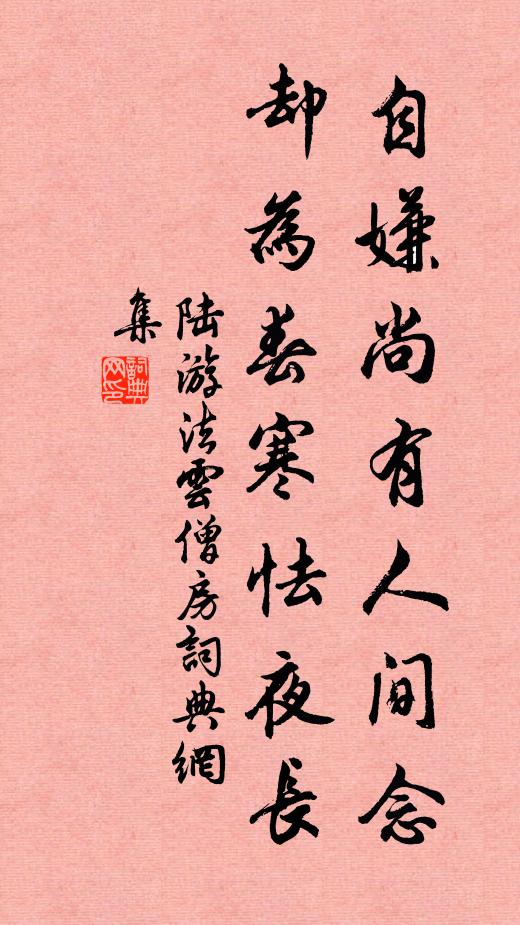 自嫌尚有人间念
却為春寒怯夜長
陆游法雲僧房詞典網
集
詞典网印